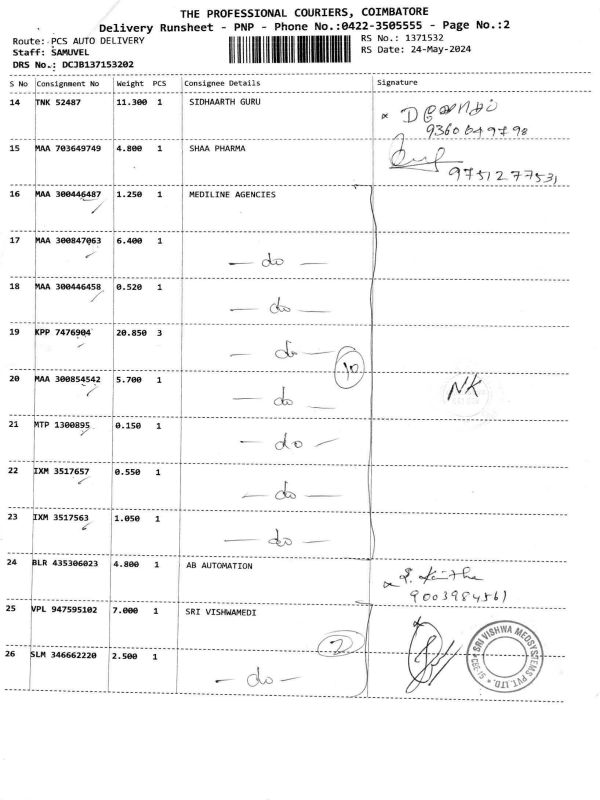 THE PROFESSIONAL COURIERS, COIMBATORE
Delivery Runsheet - PNP - Phone No.:0422-3505555 - Page No.:2
Route: PCS AUTO DELIVERY
RS No.: 1371532
Staff: SAMUVEL
RS Date: 24-May-2024
DRS No.: DCJB137153202
S No Consignment No Weight PCS Consignee Details Signature
14 TNK 52487 11.300 1 SIDHAARTH GURU
15 MAA 703649749 4.800 1 SHAA PHARMA
9751277531
16 MAA 300446487 1.250 1 MEDILINE AGENCIES
17 MAA 300847063 6.400 1 — do —
18 MAA 300446458 0.520 1 — do —
19 KPP 7476904 20.850 3 — do —
10
20 MAA 300854542 5.700 1 — do — NK
21 MTP 1300895 0.150 1 — do —
22 IXM 3517657 0.550 1 — do —
23 IXM 3517563 1.050 1 — do —
24 BLR 435306023 4.800 1 AB AUTOMATION
9003984561
25 VPL 947595102 7.000 1 SRI VISHWAMEDI
2
SRI VISHWA MEDSYSTEMS PVT. LTD.
26 SLM 346662220 2.500 1 — do —